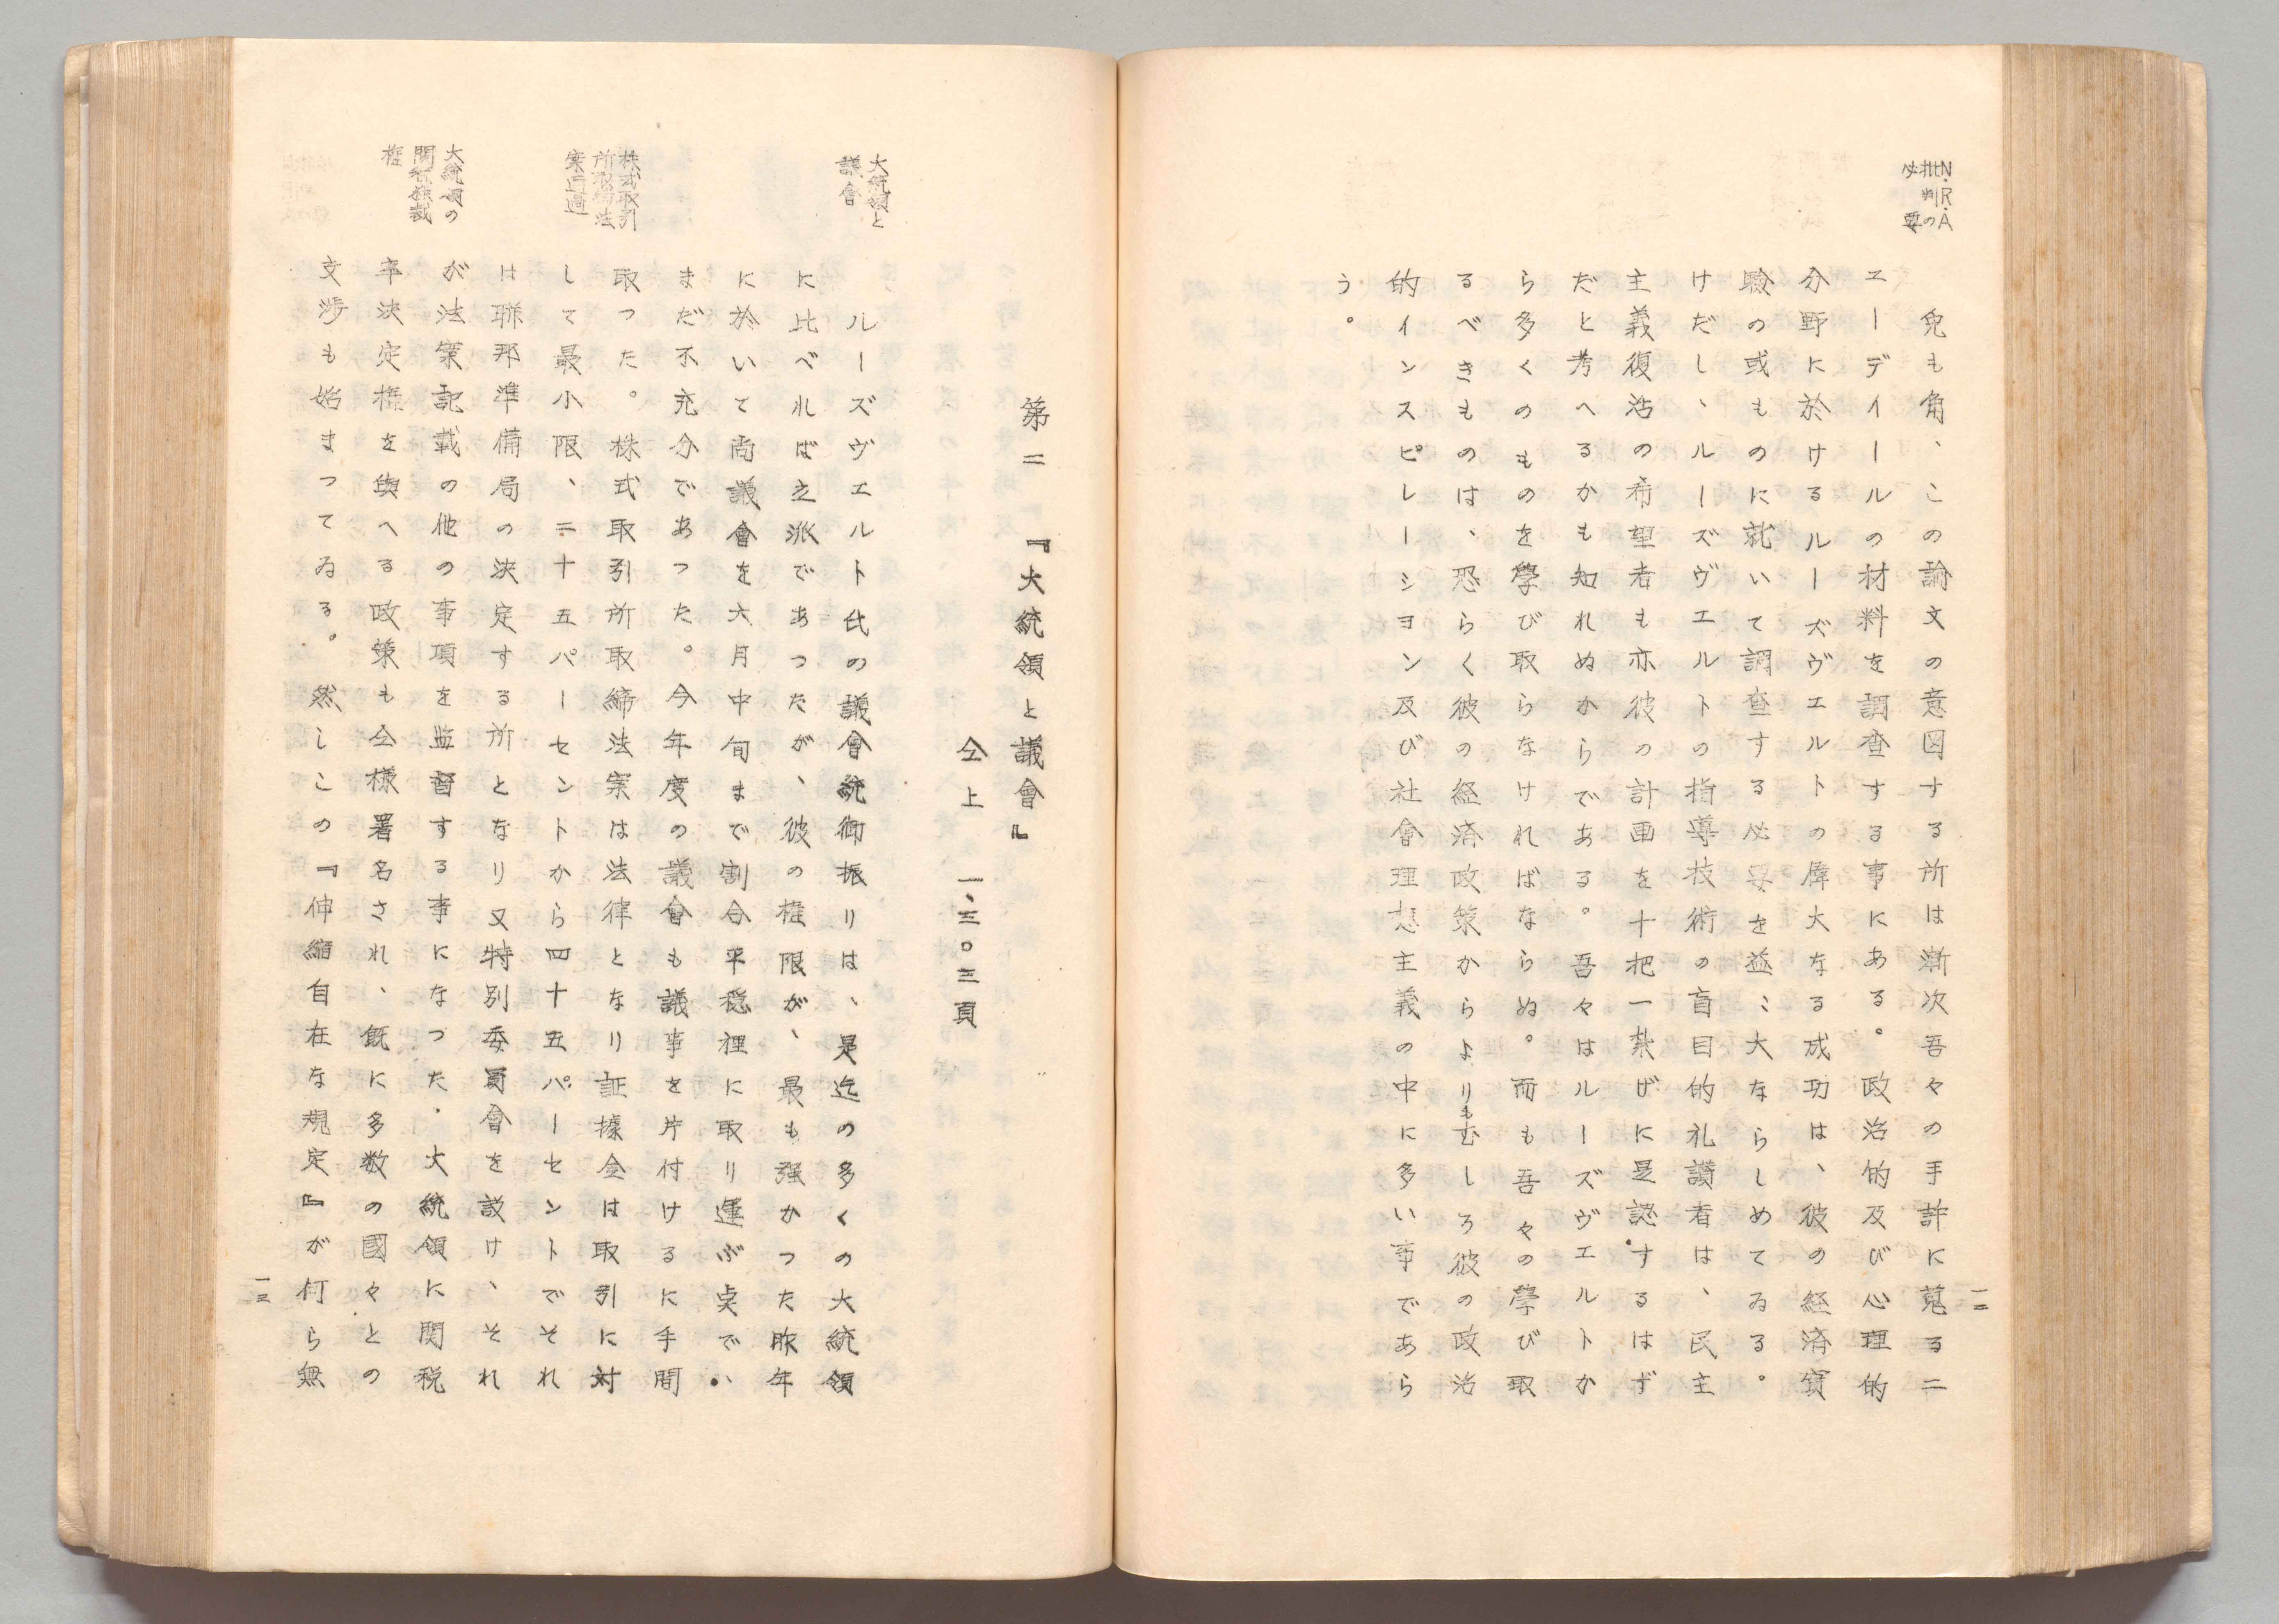 N・R・A
批判の
必要
兔も角、この論文の意図する所は漸次吾々の手許に蒐る二
エーデイールの材料を調査する事にある。政治的及び心理的
分野に於けるルーズヴエルトの厖大なる成功は、彼の経済実
驗の或ものに就いて調査する必要を益〻大ならしめてゐる。
けだし、ルーズヴエルトの指導技術の盲目的礼讃者は、民主
主義復活の希望者も亦彼の計画を十把一紮げに是認するはず
だと考へるかも知れぬからである。吾々はルーズヴエルトか
ら多くのものを學び取らなければならぬ。而も吾々の學び取
るべきものは、恐らく彼の経済政策からよりもむしろ彼の政治
的インスピレーシヨン及び社會理想主義の中に多い事であら
う。
一二
第二　『大統領と議會』
仝上　一、三〇三頁
大統領と
議會
ルーズヴエルト氏の議會統御振りは、是迄の多くの大統領
に比べれば立派であつたが、彼の権限が、最も強かつた昨年
に於いて両議會を六月中旬まで割合平穏裡に取り運ぶ点で、
まだ不充分であつた。今年度の議會も議事を片付けるに手間
株式取引
所取締法
案通過
取った。株式取引所取締法案は法律となり証據金は取引に対
して最小限、二十五パーセントから四十五パーセントでそれ
は聯邦準備局の決定する所となり又特別委員會を設け、それ
が法案記載の他の事項を監督する事になつた。大統領に関税
大統領の
関税獨裁
権
率決定権を與へる政策も仝様署名され、既に多数の國々との
交渉も始まつてゐる。然しこの『伸縮自在な規定』が何ら無
一三